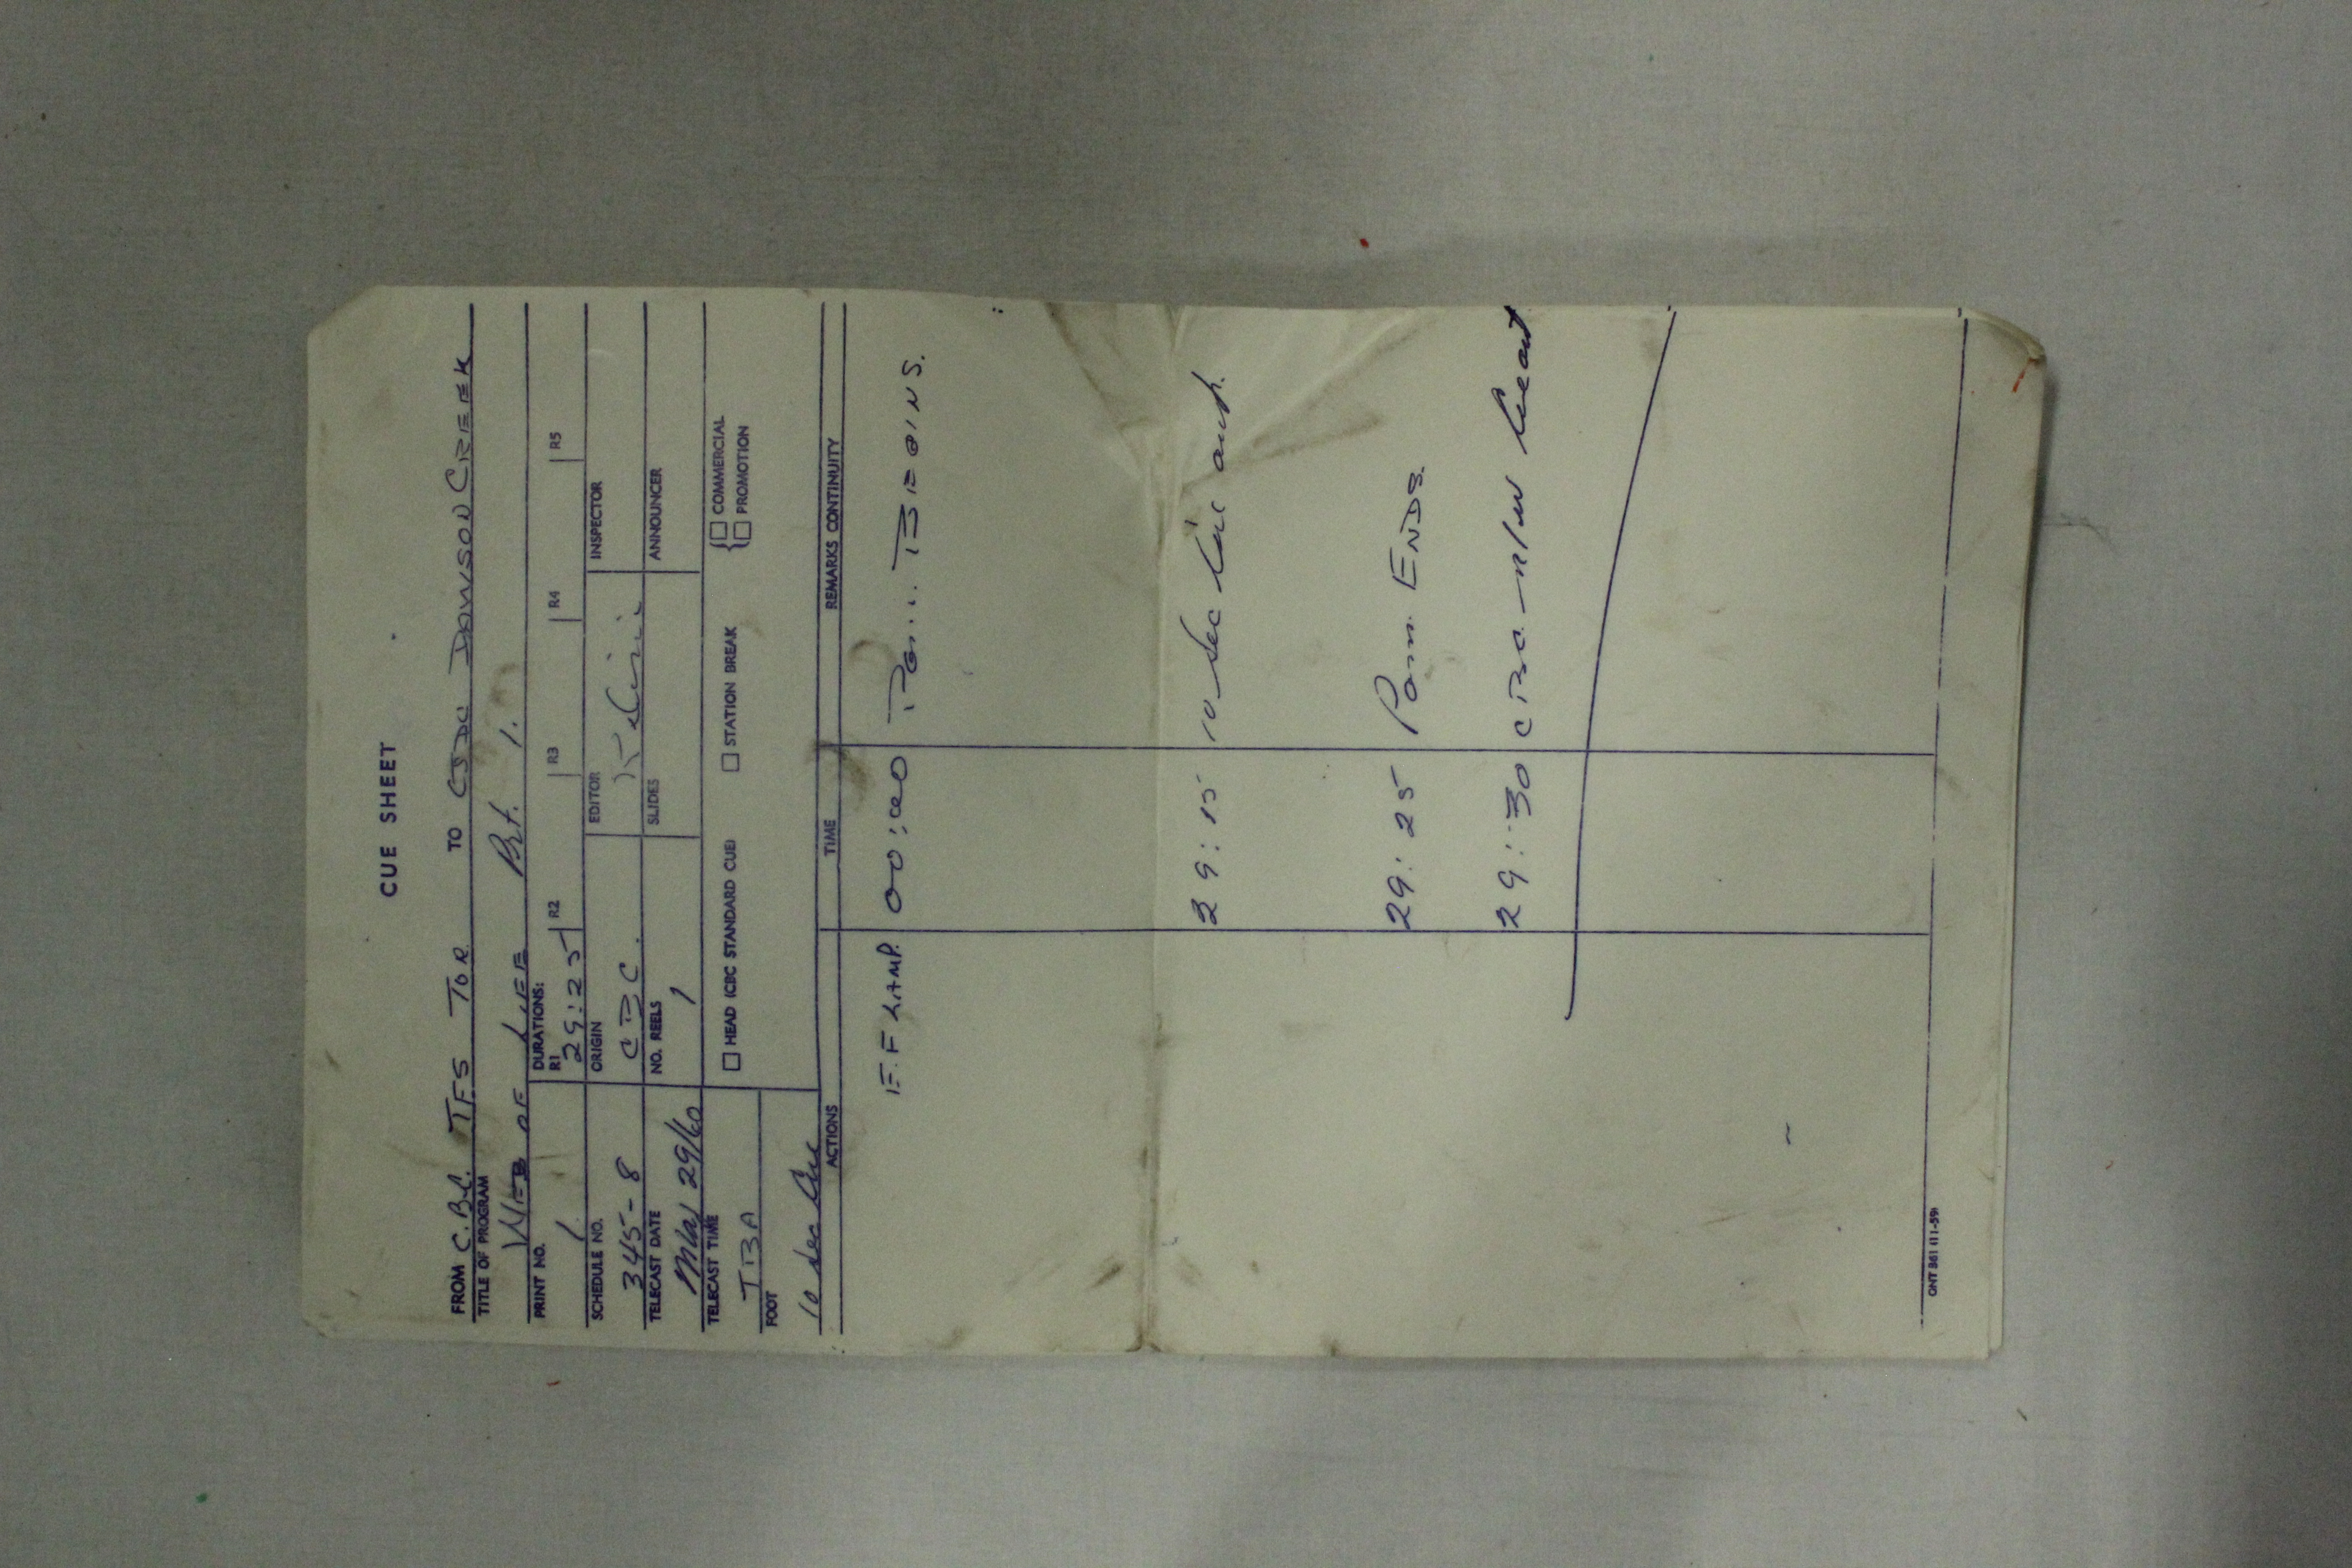 CUE SHEET
FROM C.B.C. TFS TOR. TO CJDC DAWSON CREEK
TITLE OF PROGRAM
WEB OF LIFE Prt. 1.
PRINT NO.
1
DURATIONS:
R1 29:25 R2 R3 R4 R5
SCHEDULE NO.
345-8
ORIGIN
CBC.
EDITOR
INSPECTOR
TELECAST DATE
May 29/60
NO. REELS
1
SLIDES
ANNOUNCER
TELECAST TIME
TBA
HEAD (CBC STANDARD CUE) STATION BREAK { COMMERCIAL
PROMOTION
FOOT
10 sec Cue
ACTIONS TIME REMARKS CONTINUITY
00:00 BEGINS.
29:15 10 sec Cue
29:25 Pgm ENDS.
29:30 CBC
ONT 361 (11-59)